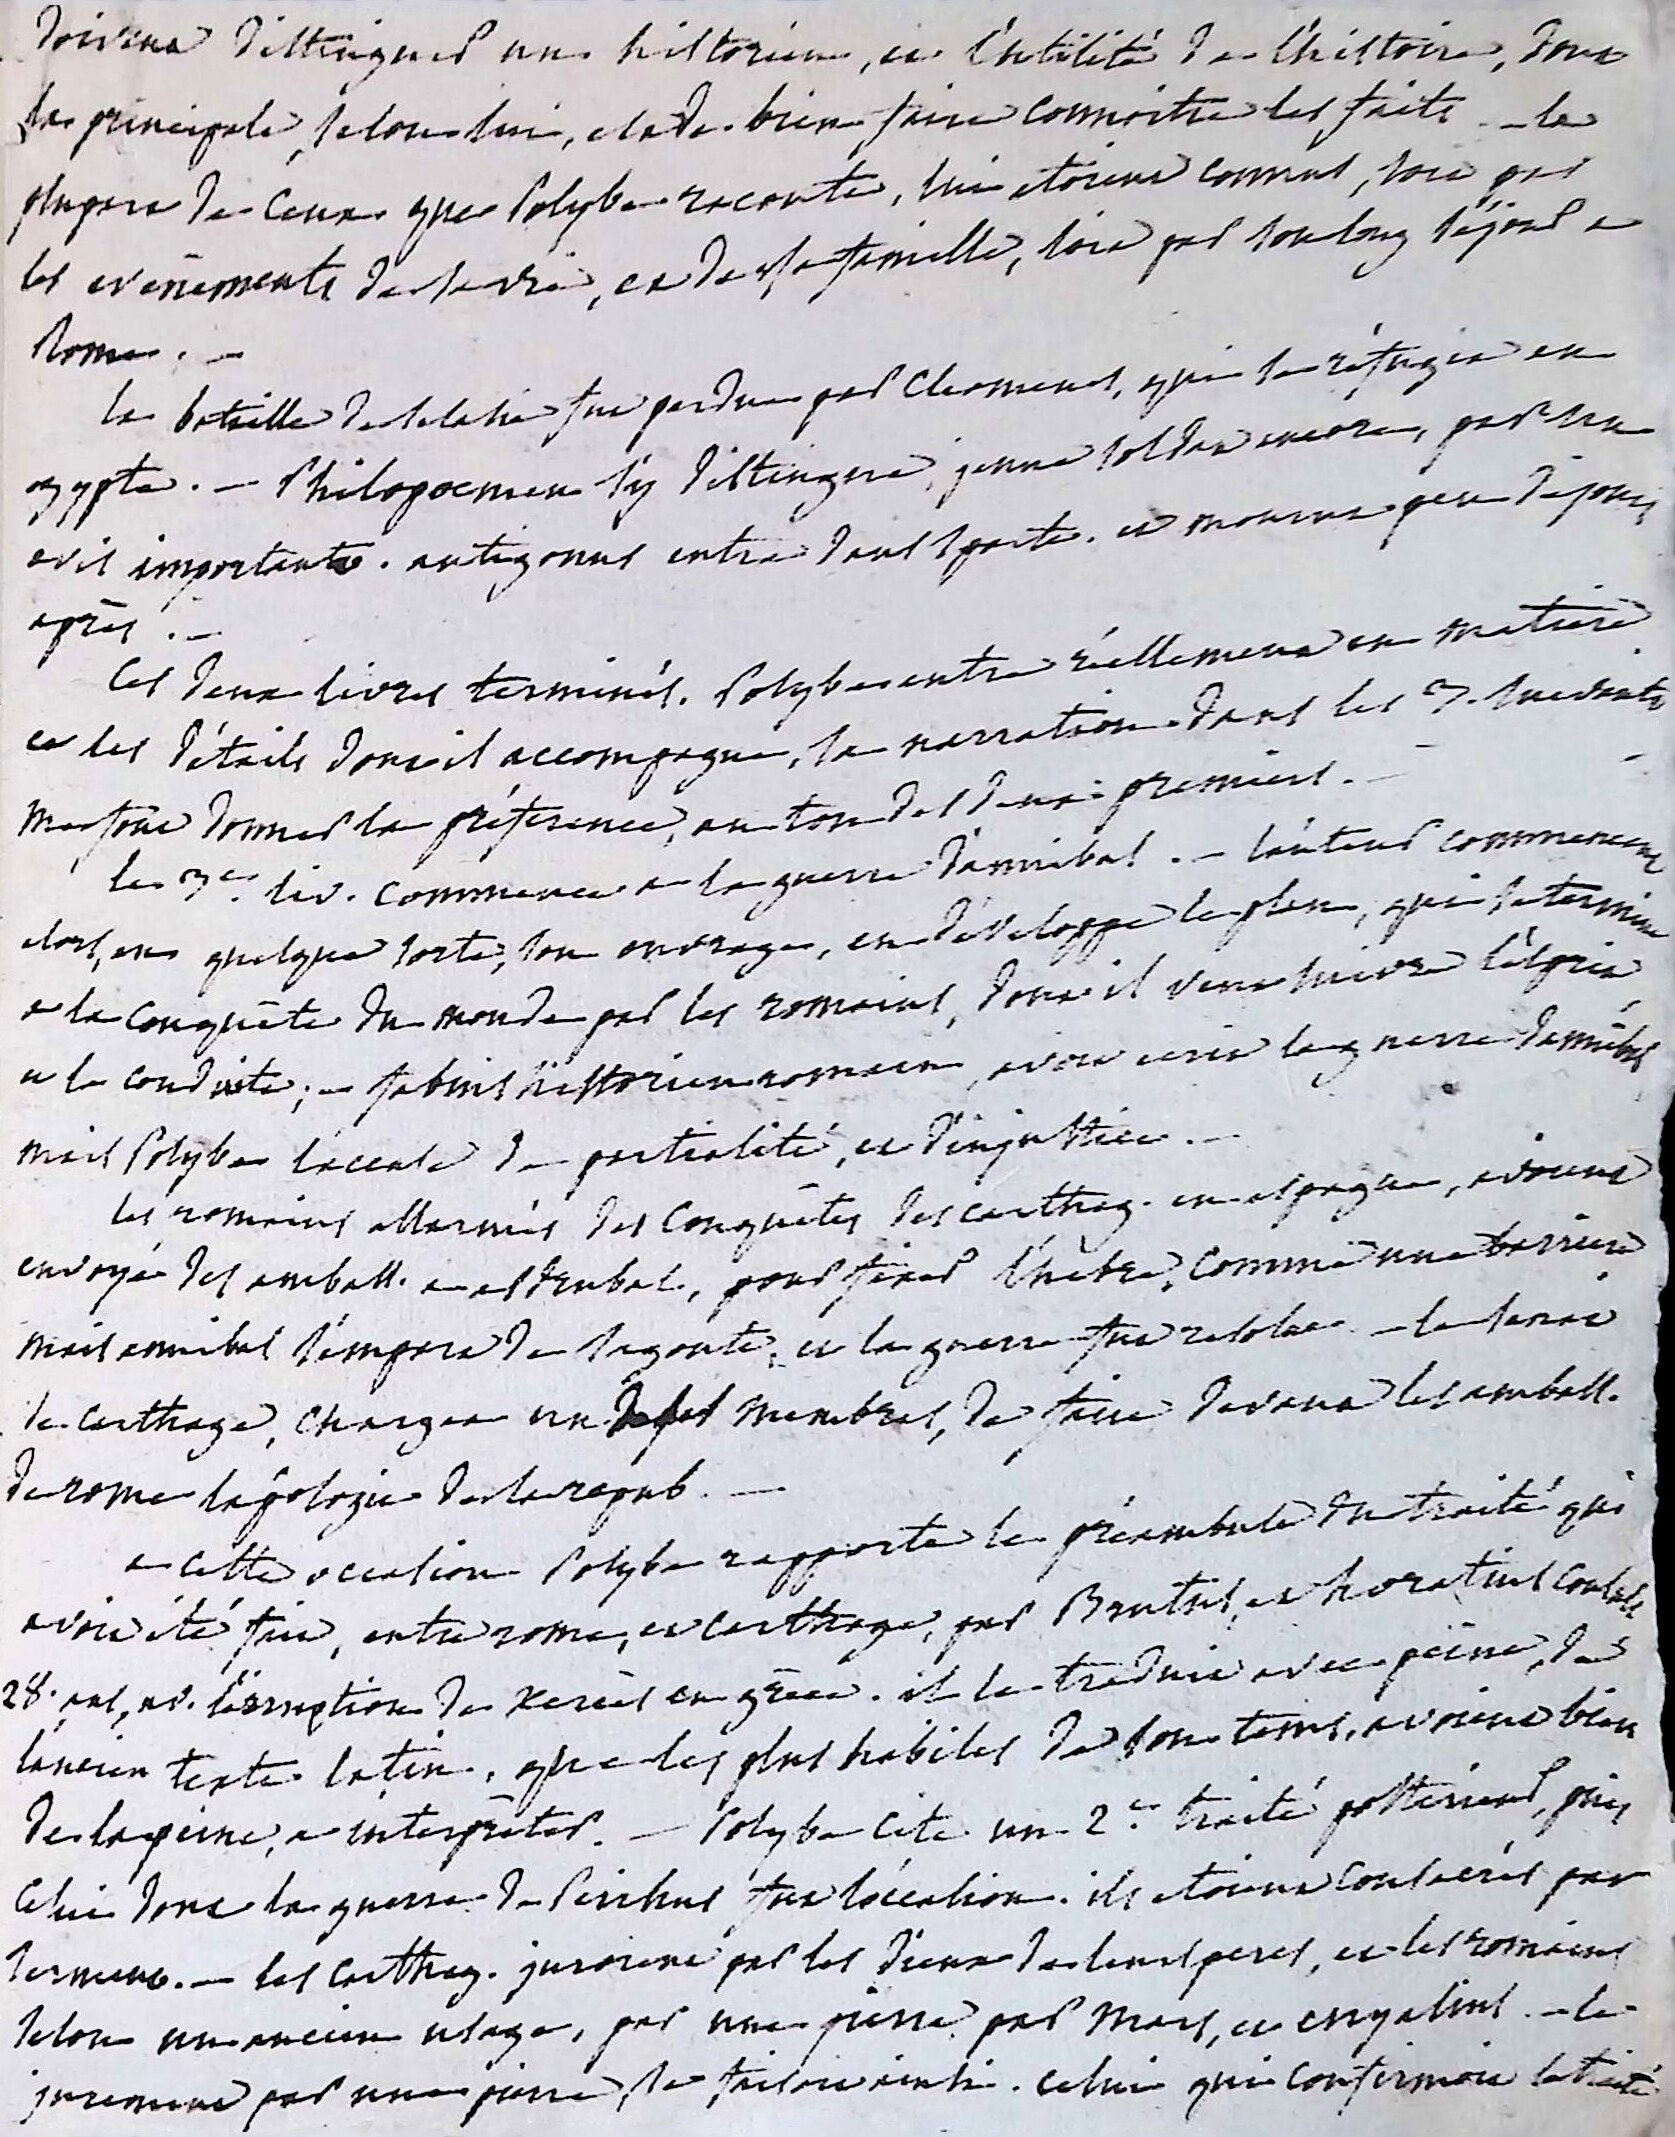 doivent distinguer un historien, et l'utilité de l'histoire, dont
la principale, selon lui, est de bien faire connoitre les faits. – la
plupart de ceux que Polybe raconte, lui etoient connus, soit par
les evenements de sa vie, et de sa famille, soit par son long séjour a
Rome. –
la bataille de Selasie fut perdue par Cleomenes, qui se réfugia en
egypte. – Philopoemen s'y distingua, jeune soldat encore, par un
avis important. antigonus entra dans Sparte. et mourut peu de jours
après. –
Ces deux livres terminés. Polybe entre réellement en matiere
et les détails dont il accompagne, sa narration dans les 3. suivants
me font donner la préférence, au ton des deux premiers. –
le 3e. liv. commence a la guerre d'annibal. – l'auteur commence
alors, en quelque sorte, son ouvrage, en développe le plan, qui se termine
a la conquête du monde par les romains, dont il veut suivre l'esprit
et la conduite; – fabius historien romain, avoit ecrit la guerre d'annibal
mais Polybe l'accuse de partialité, et d'injustice. –
les romains allarmés des conquêtes des carthag. en espagne, avoient
envoyé des ambass. a asdrubal, pour fixer l'hebre, comme une barriere
mais annibal s'empara de sagonte, et la guerre fut resolue. – le senat
de carthage, chargea un de ses membres, de faire devant les ambass.
de rome l'apologie de la repub. –
a cette occasion Polybe rapporte le préambule du traité qui
avoit été fait, entre rome, et carthage, par Brutus, et horatius consuls
28. ans, av. l'irruption de xercès en grèce. il le traduit avec peine, de
l'ancien texte latin, que les plus habiles de son tems, avoient bien
de la peine, a interpréter. – Polybe cite un 2e. traité posterieur, puis
celui dont la guerre de Pirrhus fut l'occasion. ils etoient consacrés par
serment. – les carthag. juroient par les dieux de leurs peres, et les romains
selon un ancien usage, par une pierre, par Mars, et enyalius. – le
jurement par une pierre, se faisoit ainsi. celui qui confirmoit le traité